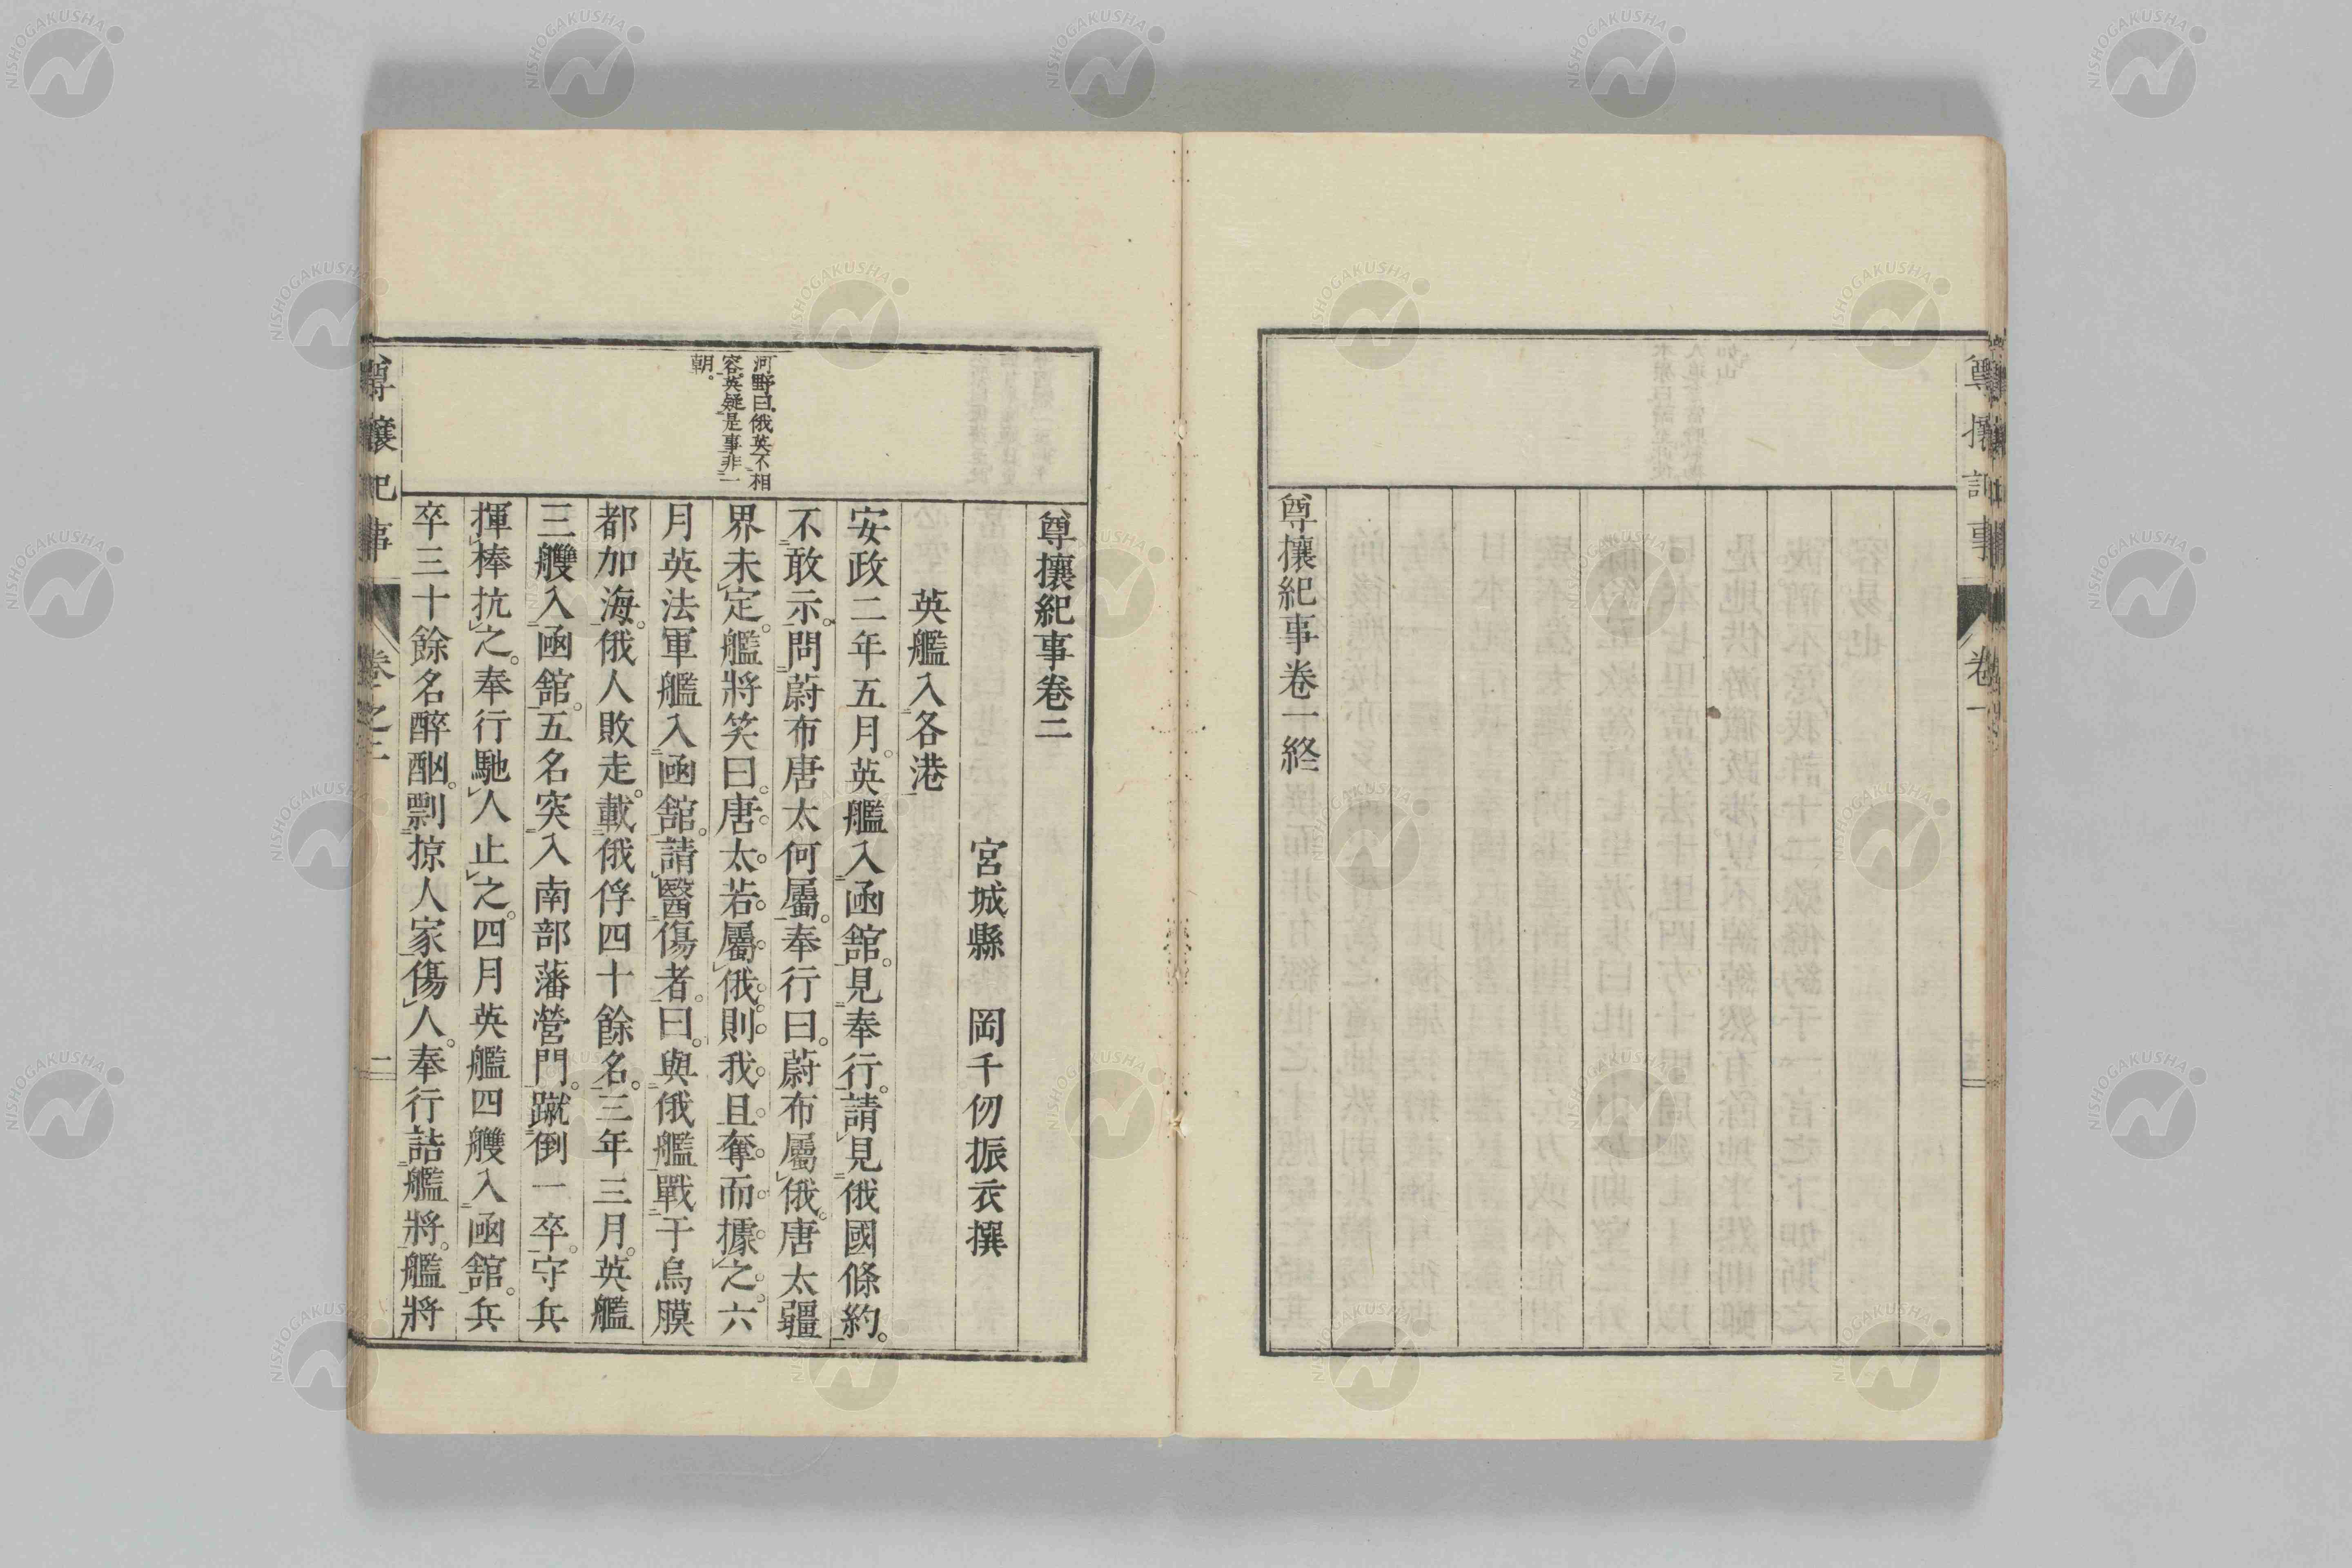 尊攘紀事卷一終
尊攘紀事卷二
宮城縣　岡千仞振衣撰
英艦入各港
安政二年五月。英艦入凾舘。見奉行。請見俄國條約。
不敢示。問蔚布唐太何屬。奉行曰。蔚布屬俄。唐太疆
界未定。艦將笑曰。唐太若屬俄。則我且奪而據之。六
月英法軍艦入凾舘。請醫傷者。曰。與俄艦戰于烏膜
都加海。俄人敗走。載俄俘四十餘名。三年三月。英艦
三艭入凾舘。五名突入南部藩營門。蹴倒一卒。守兵
揮棒抗之。奉行馳人止之。四月英艦四艭入凾舘。兵
卒三十餘名醉酗。剽掠人家傷人。奉行詰艦將。艦將
河野曰。俄英不相
容。英疑是事非一
朝。
尊攘紀事　卷之二　一
NISHOGAKUSHA